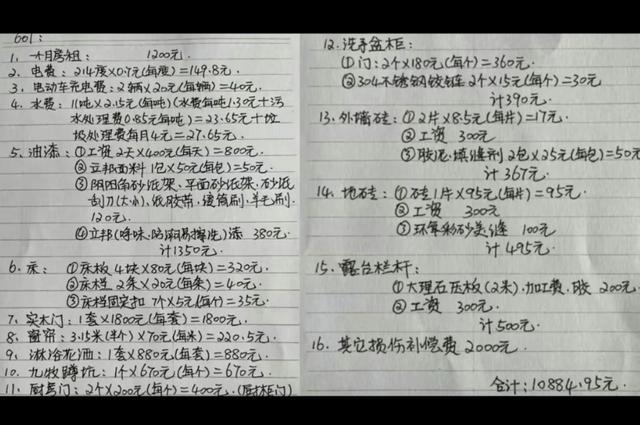 601:
1. 一个月房租: 1200元.
2. 电费: 214度×0.7元(每度)=149.8元.
3. 电动车充电费: 2辆×20元(每辆)=40元.
4. 水费: 11吨×2.15元(每吨)(水费每吨1.30元+污
水处理费0.85元每吨)=23.65元+垃
圾处理费每月4元=27.65元.
5. 油漆: ①工资2天×400元(每天)=800元.
②立邦面料 1包×50元(每包)=50元.
③阴阳角砂纸架、平面砂纸架、砂纸
刮刀(大小)、纸胶带、滚筒刷、羊毛刷.
120元.
④立邦(净味、防潮易擦洗)漆 380元.
计1350元.
6. 床: ①床板4块×80元(每块)=320元.
②床栏 2条×20元(每条)=40元.
③床档固定扣 7个×5元(每个)=35元.
7. 实木门: 1套×1800元(每套)=1800元.
8. 窗帘: 3.15米(半个)×70元(每米)=220.5元.
9. 淋浴花洒: 1套×880元(每套)=880元.
10. 九牧蹲坑: 1个×670元(每个)=670元.
11. 厨房门: 2个×200元(每个)=400元.(厨柜门)
12. 洗手盆柜:
①门: 2个×180元(每个)=360元.
②304不锈钢铰链2个×15元(每个)=30元
计390元.
13. 外墙砖: ①2片×8.5元(每片)=17元.
②工资 300元
③胶泥、填缝剂2包×25元(每包)=50元
计367元.
14. 地砖: ①砖1片×95元(每片)=95元.
②工资 300元
③环氧彩砂美缝 100元
计495元.
15. 露台栏杆:
①大理石压板(2米)、加工费、胶 200元.
②工资 300元.
计500元.
16. 其它损伤补偿费2000元.
合计: 10884.95元.